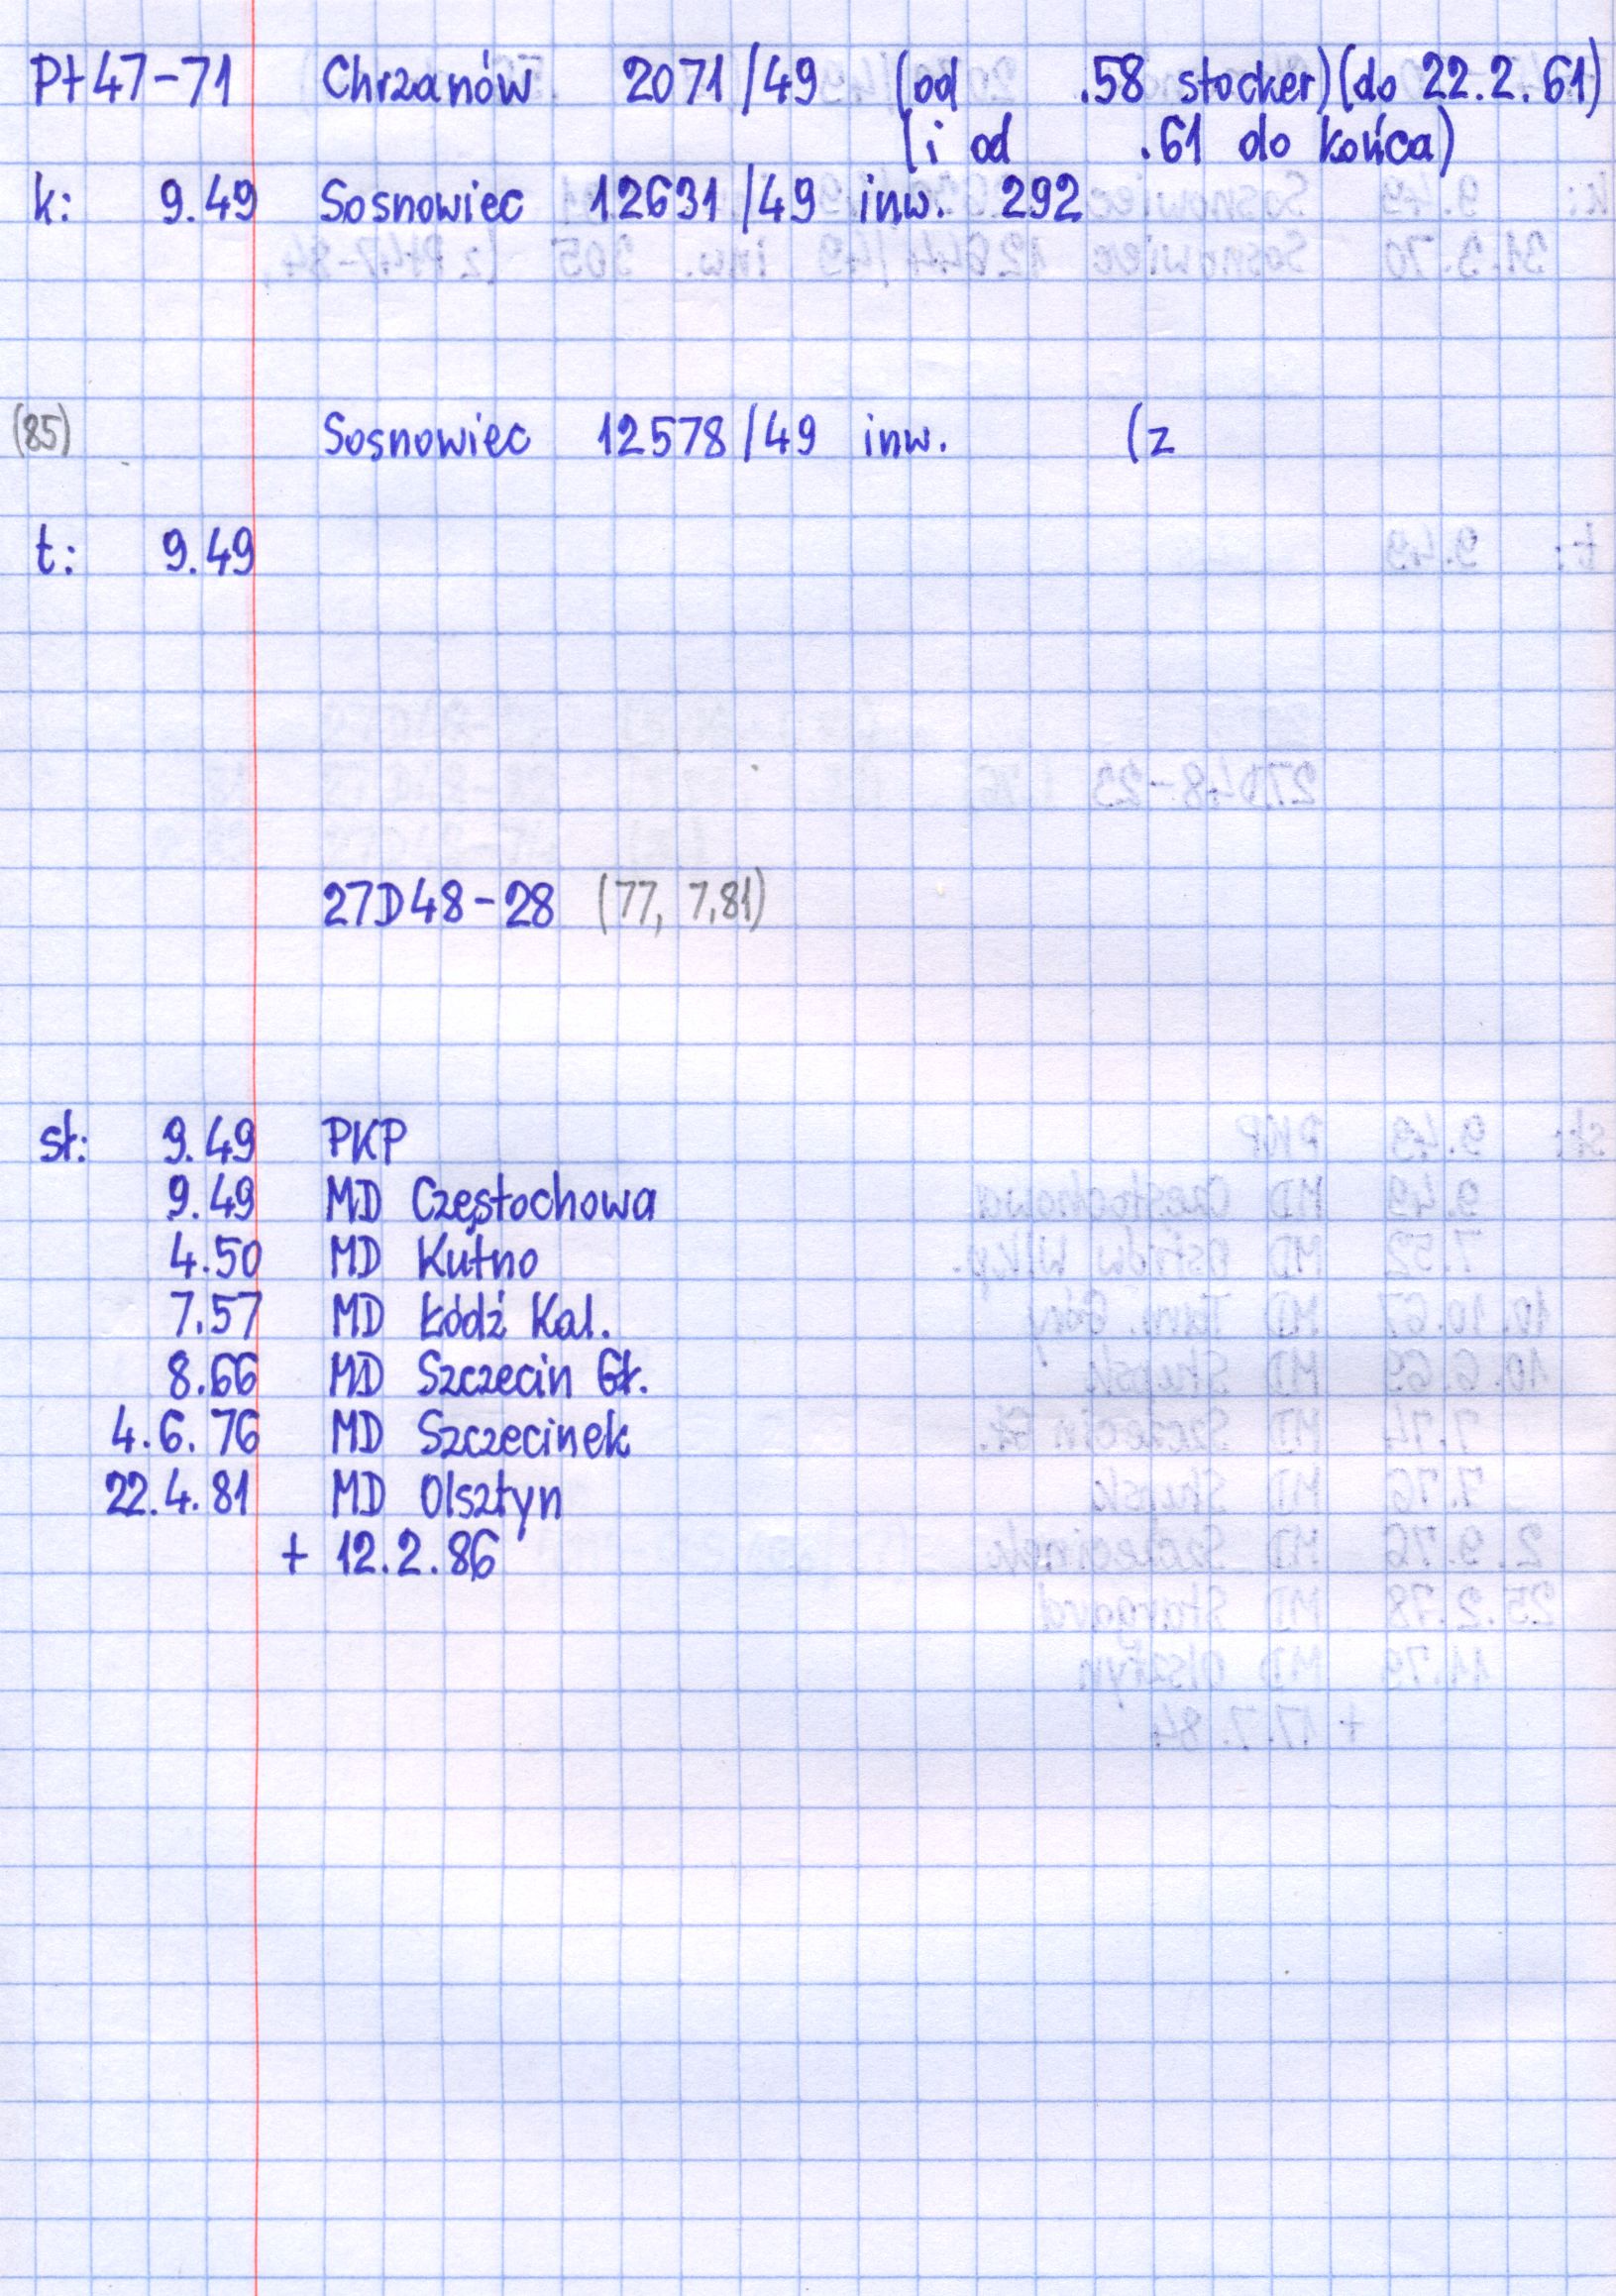 Pt47-71 Chrzanów 2071/49 (od .58 stocker)(do 22.2.61)
(i od .61 do końca)
k: 9.49 Sosnowiec 12631/49 inw. 292
(85) Sosnowiec 12578/49 inw. (z
t: 9.49
27D48-28 (77, 7,81)
st: 9.49 PKP
9.49 MD Częstochowa
4.50 MD Kutno
7.57 MD Łódź Kal.
8.66 MD Szczecin Gł.
4.6.76 MD Szczecinek
22.4.81 MD Olsztyn
+ 12.2.86